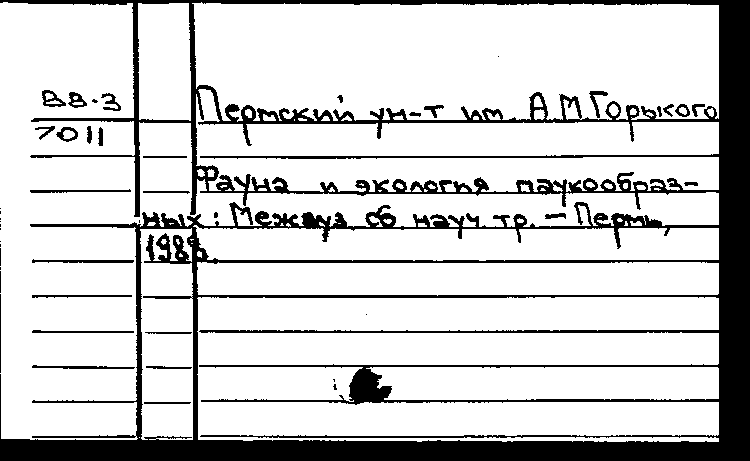 В8-3
Пермский ун-т им. А.М.Горького
7011
Фауна и экология паукообраз-
ных: Межвуз сб науч. тр. – Пермь,
1988.